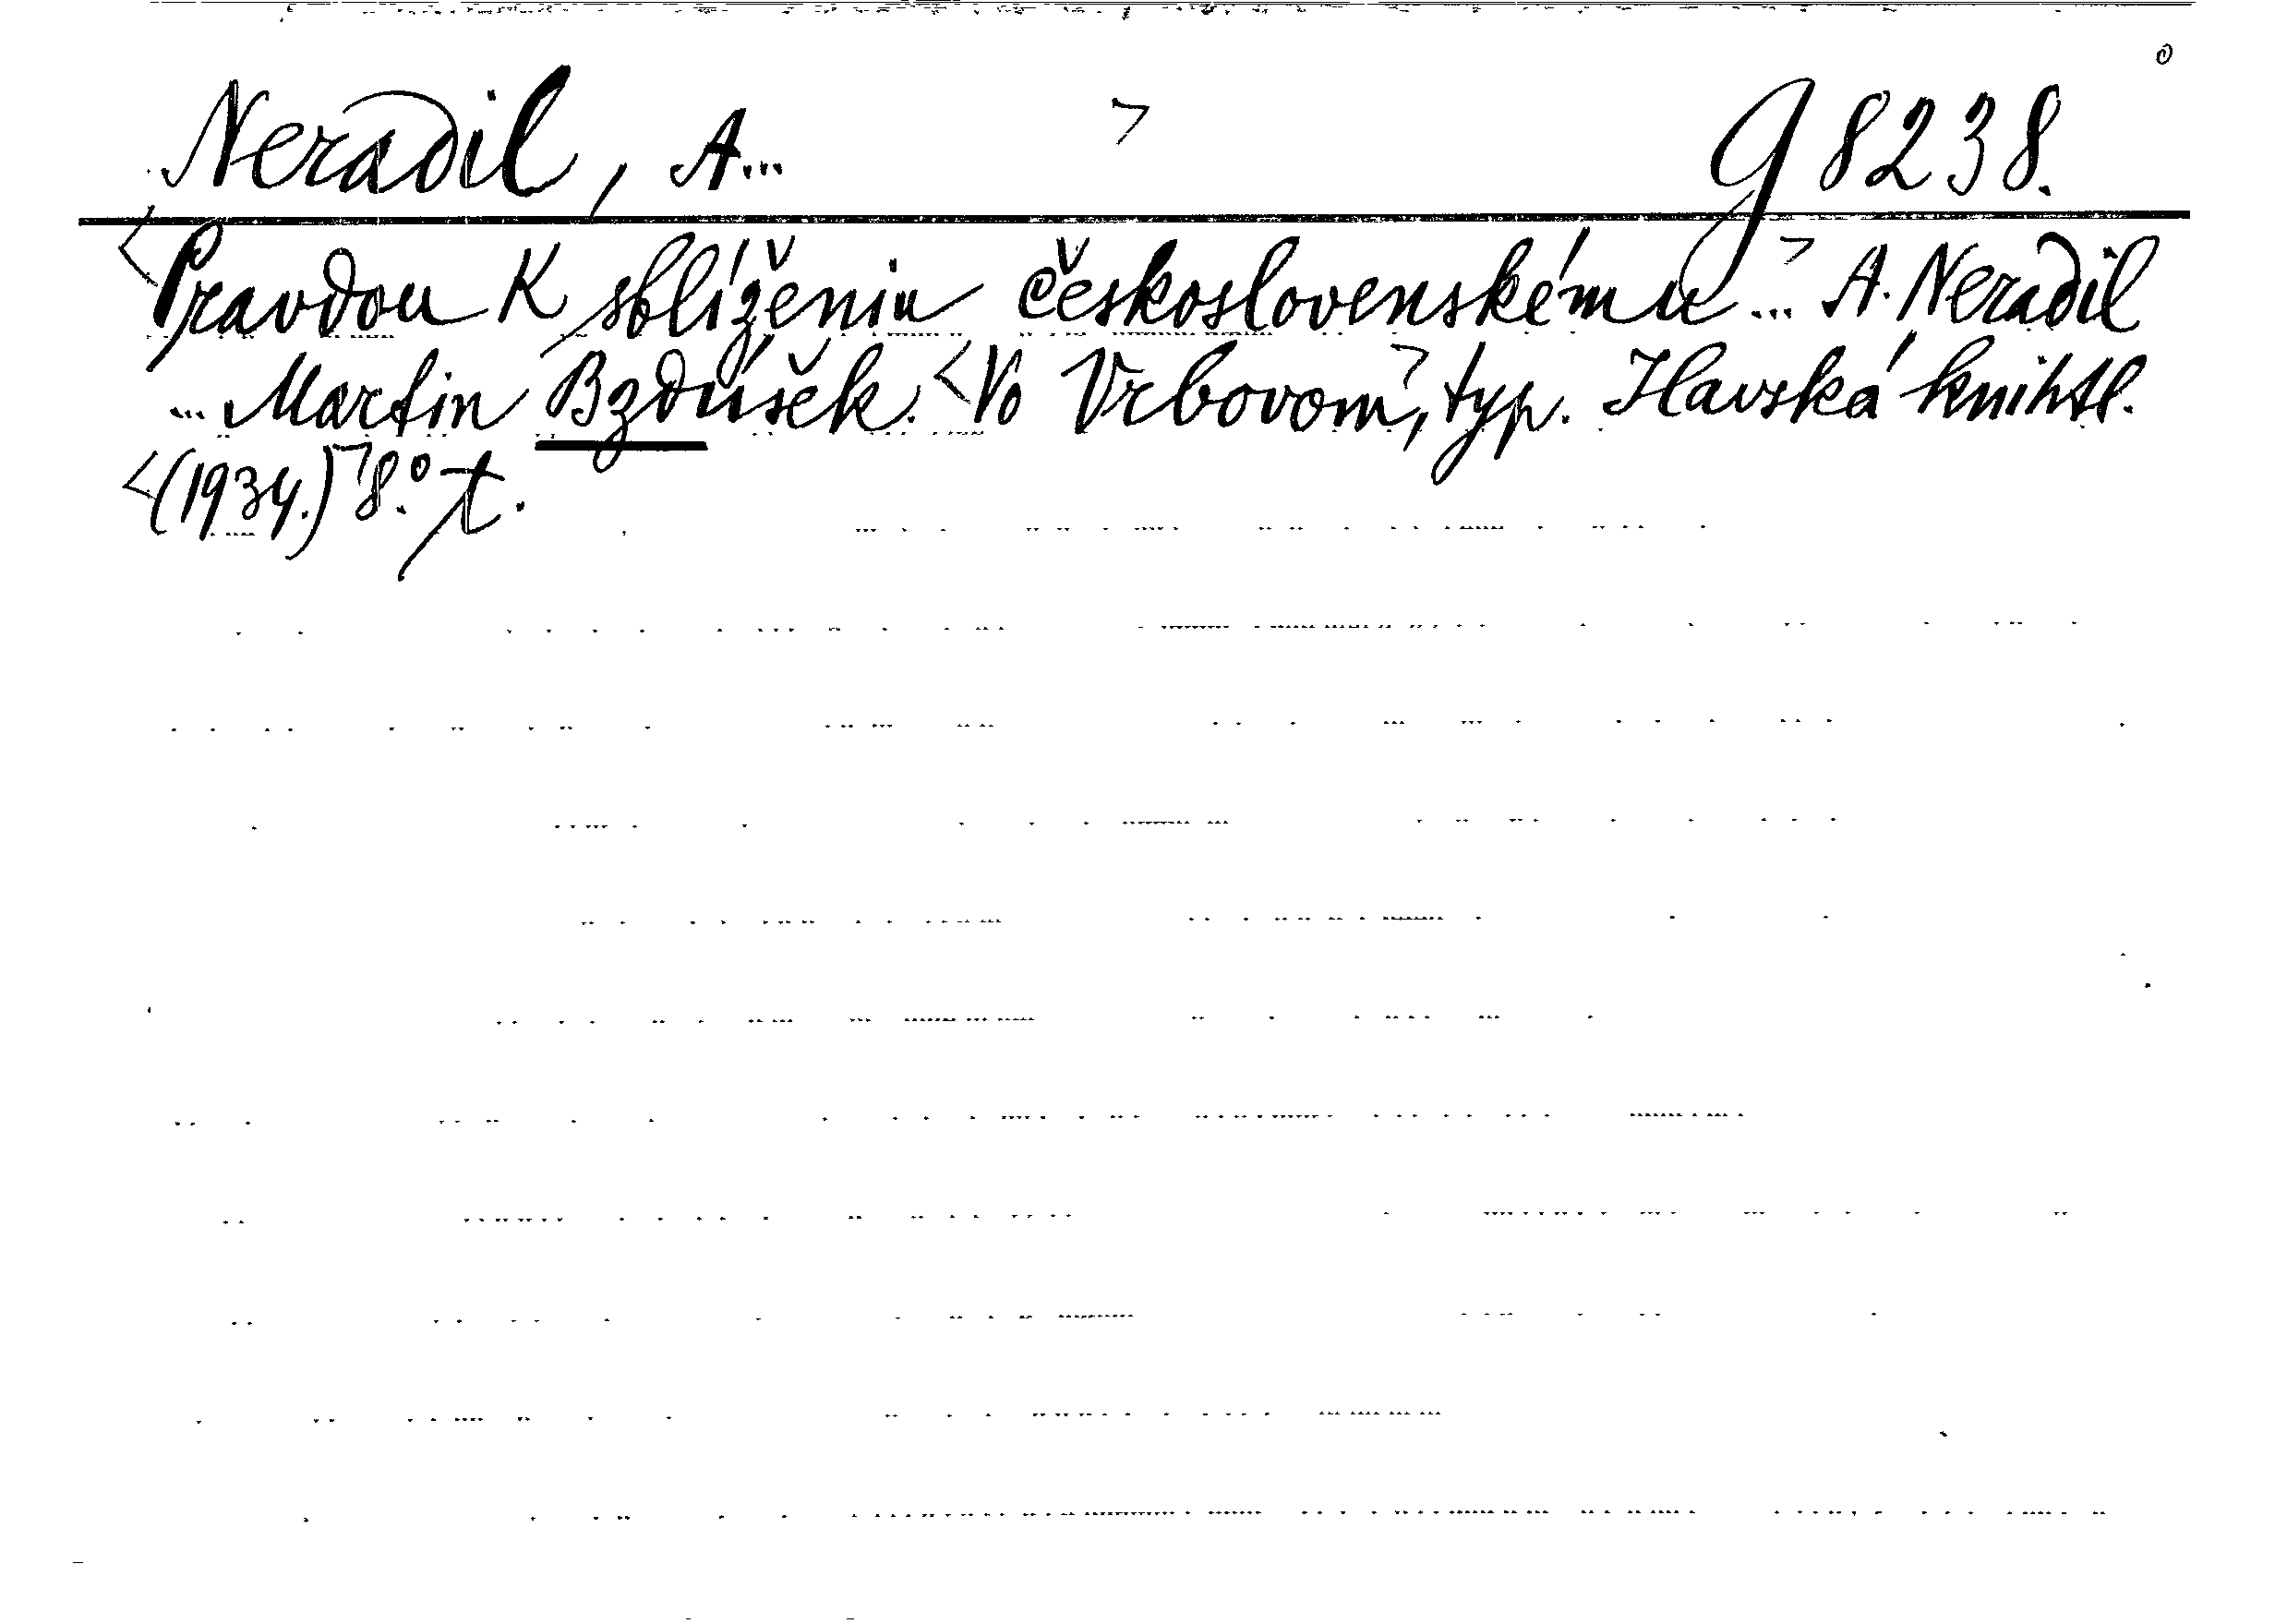 Neradil, A... > g 8238.
<Pravdou k sblíženiu československému...> A. Neradil
... Martin Bzdúšek. <Vo Vrbovom>, typ. Hlavská knihtl.
<(1934.)> 8.° t.